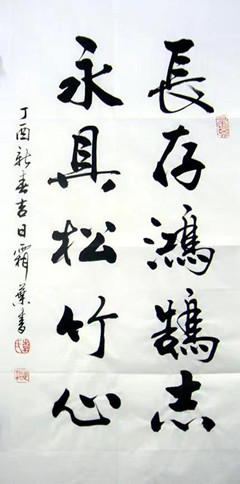 長存鴻鵠志
永具松竹心
丁酉新春吉日霜葉書